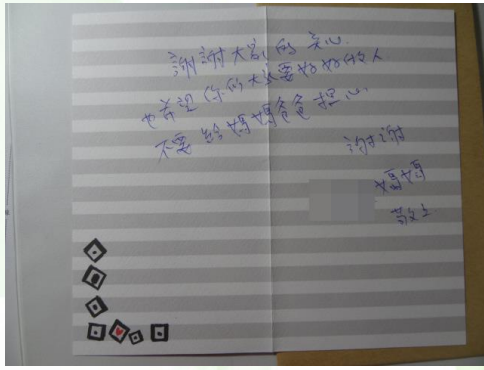 謝謝大家的关心
也希望你们大家要好好做人
不要給媽媽爸爸担心
謝謝
媽媽
敬上